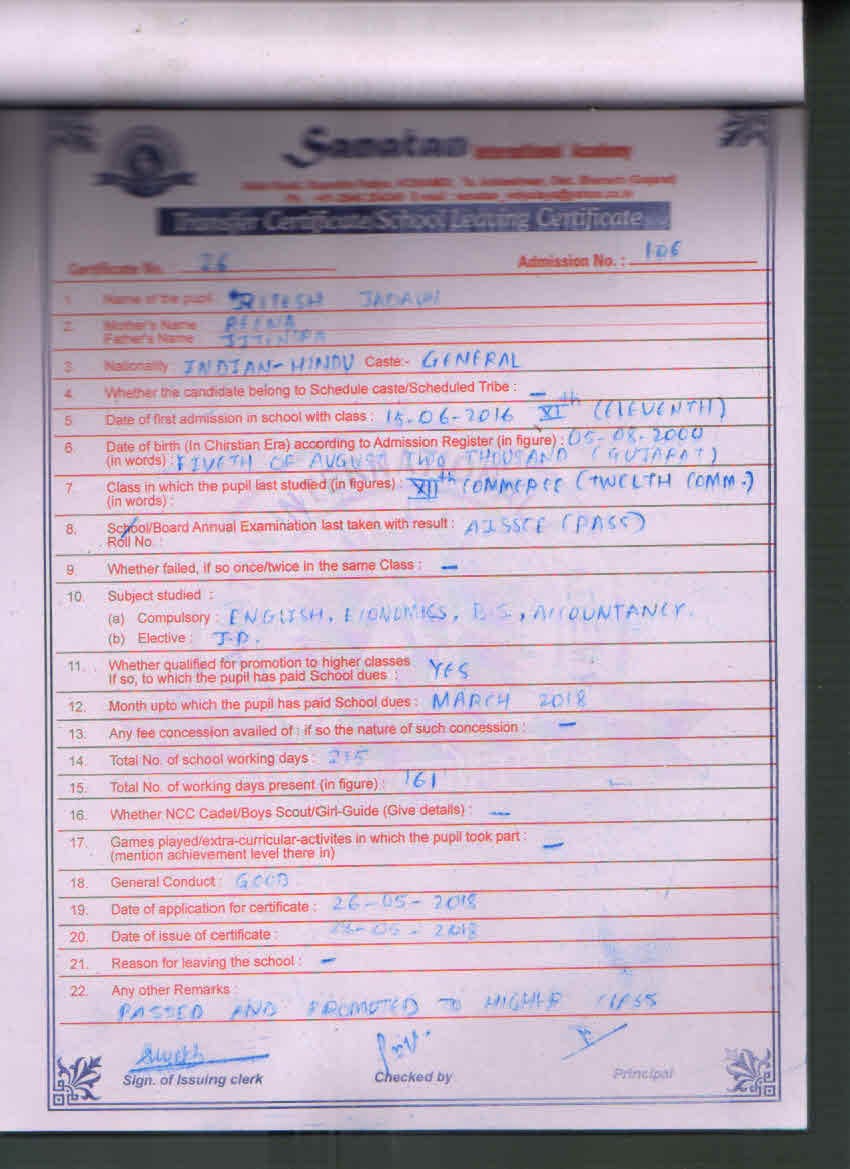 Sanatan International Academy
Transfer Certificate/School Leaving Certificate
Certificate No. 26 Admission No. : 106
1. Name of the pupil : RITESH JADAV
2. Mother's Name REENA
Father's Name JITENDRA
3. Nationality INDIAN-HINDU Caste:- GENERAL
4. Whether the candidate belong to Schedule caste/Scheduled Tribe : -
5. Date of first admission in school with class : 15-06-2016 XIth (ELEVENTH)
6. Date of birth (In Chirstian Era) according to Admission Register (in figure) : 05-08-2000
(in words) : FIVETH OF AUGUST TWO THOUSAND (GUJARAT)
7. Class in which the pupil last studied (in figures) : XIIth COMMERCE (TWELTH COMM.)
(in words) :
8. School/Board Annual Examination last taken with result : AISSCE (PASS)
Roll No. :
9. Whether failed, if so once/twice in the same Class : -
10. Subject studied :
(a) Compulsory : ENGLISH, ECONOMICS, B.S., ACCOUNTANCY.
(b) Elective : I.P.
11. Whether qualified for promotion to higher classes
If so, to which the pupil has paid School dues : YES
12. Month upto which the pupil has paid School dues : MARCH 2018
13. Any fee concession availed of : if so the nature of such concession : -
14. Total No. of school working days :
15. Total No. of working days present (in figure) : 161
16. Whether NCC Cadet/Boys Scout/Girl-Guide (Give details) : -
17. Games played/extra-curricular-activites in which the pupil took part : -
(mention achievement level there in)
18. General Conduct : GOOD
19. Date of application for certificate : 26-05-2018
20. Date of issue of certificate : 28-05-2018
21. Reason for leaving the school : -
22. Any other Remarks :
PASSED AND PROMOTED TO HIGHER CLASS
Sign. of Issuing clerk Checked by Principal